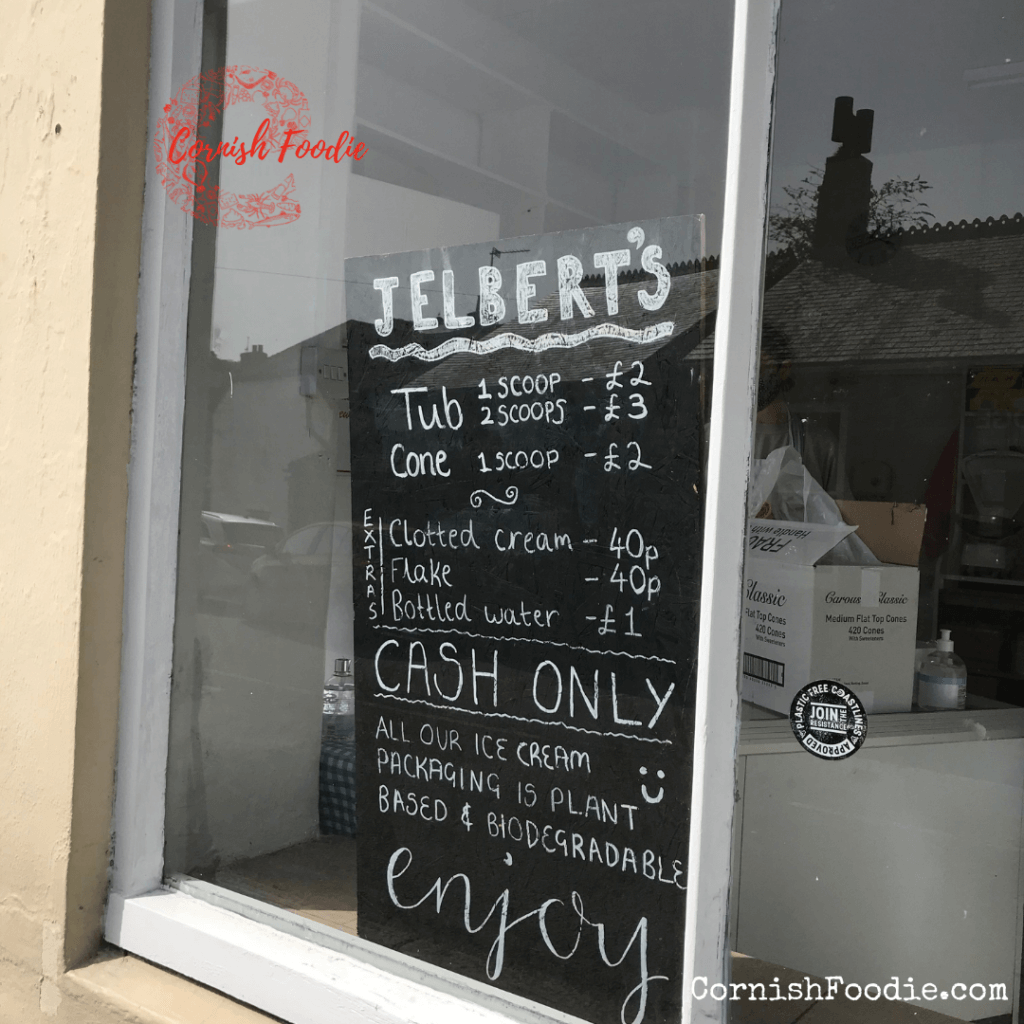 Cornish Foodie
JELBERT'S
Tub 1 SCOOP - £2
2 SCOOPS - £3
Cone 1 SCOOP - £2
EXTRAS
Clotted cream - 40p
Flake - 40p
Bottled water - £1
CASH ONLY
ALL OUR ICE CREAM
PACKAGING IS PLANT
BASED & BIODEGRADABLE
enjoy
Handle with
FRAG
Classic
Flat Top Cones
420 Cones
Classic
Medium Flat Top Cones
420 Cones
With Sweeteners
PLASTIC FREE COASTLINES
JOIN THE
RESISTANCE
APPROVED
CornishFoodie.com